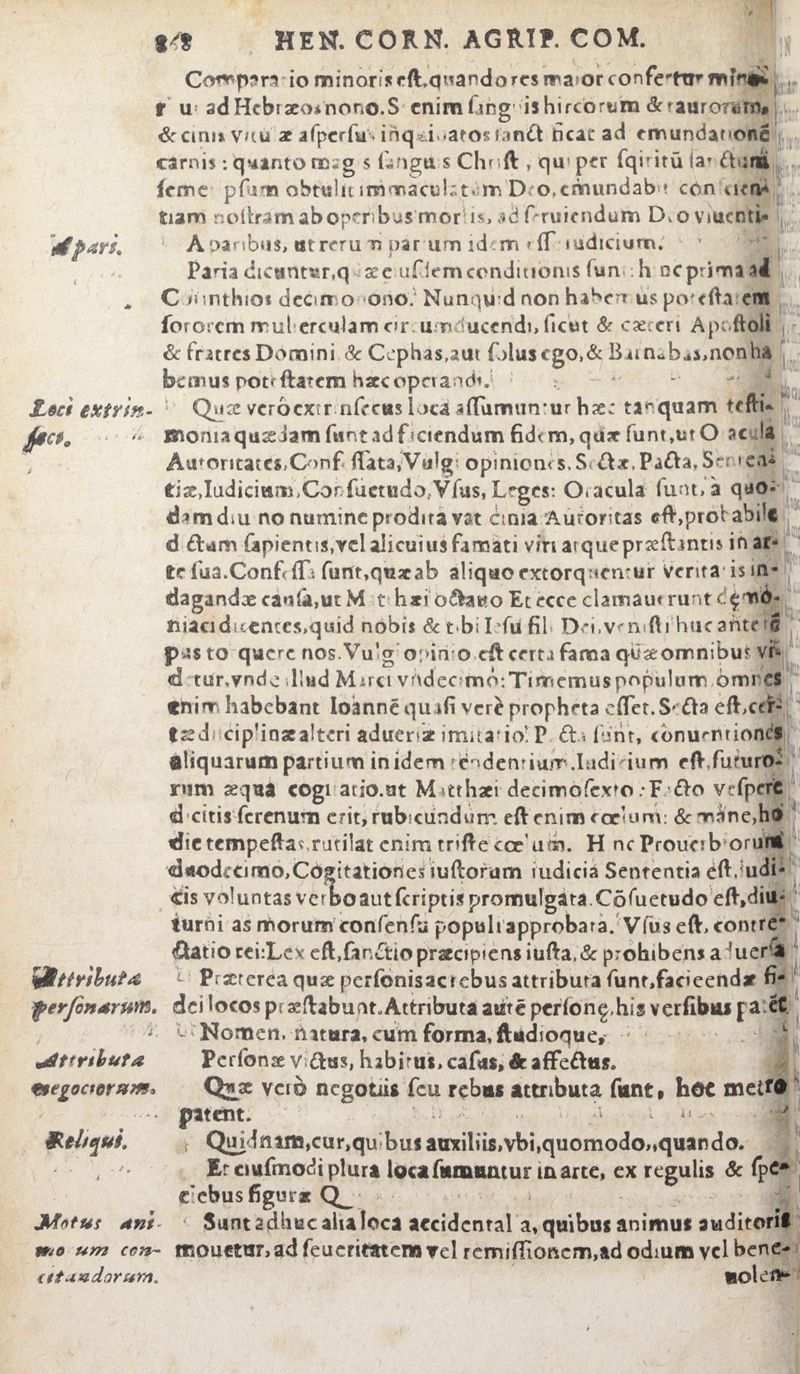 HEN. CORN. AGRIP. COM.
Compara io minoris eſt, quando res maior confertur
u ad Hebræos nono. S enim ſang is hircorum & taurorum,
& cinis vitu æ aſperſu inq atos ſanct ficat ad emundationē
carnis : quanto mag s ſangu s Chriſt , qui per ſpiritū
ſeme pſum obtulit immaculatum Deo, emundabit
tiam noſtram ab operibus mortis, ad ſeruiendum Deo viuenti-
A pari.
A paribus, ut rerum parium idem eſſ iudicium.
Paria dicuntur, quæ eiuſdem conditionis ſunt: h nc prima ad
Corinthios decimo nono. Nunquid non habemus poteſtatem
ſororem mulierculam circumducendi, ſicut & cæteri Apoſtoli
& fratres Domini & Cephas, aut ſolus ego, & Barnabas, non ha
bemus poteſtatem hæc operandi.
Loci extrin-
ſeci.
Quæ verò extrinſecus loca aſſumuntur hæc tanquam teſti-
monia quædam ſunt ad ficiendum fidem, quæ ſunt, ut O acula
Autoritates, Conf ſſata, Vulgi opiniones, S ctæ, Pacta, Senten-
tiæ, Iudicium, Conſuetudo, Vſus, Leges: Oracula ſunt, à quo-
dam diu no numine prodita vat cinia Autoritas eſt, probabile
d ctum ſapientis, vel alicuius famati viri atque præſtantis in ar-
te ſua. Confeſſa ſunt, quæ ab aliquo extorquentur verita is in-
dagandæ cauſa, ut M t hæi octauo Et ecce clamauerunt dęmo-
niaci dicentes, quid nobis & tibi Ieſu fili Dei, veniſti huc ante tē
pus to quere nos. Vulg opinio eſt certa fama quæ omnibus vi-
d tur, vnde illud Marci vndecimo: Timemus populum omnes
enim habebant Ioannē quaſi verè propheta eſſet. Secta eſt, cer-
tæ diſciplinæ alteri aduerſæ imitatio. P cta ſunt, conuentiones
aliquarum partium in idem tendentium. Iudicium eſt, futuro-
rum æqua cogi atio. ut Matthæi decimoſexto : Facto veſpere
d citis ſerenum erit, rubicundum eſt enim cœlum: & mane, ho
die tempeſtas, rutilat enim triſte cœlum. H nc Prouerbiorum
duodecimo, Cogitationes iuſtorum iudicia Sententia eſt, iudi-
cis voluntas verbo aut ſcriptis promulgata. Cōſuetudo eſt, diu-
turni as morum conſenſu populi approbata. Vſus eſt, contre-
ctatio rei: Lex eſt, ſanctio præcipiens iuſta, & prohibens aduerſa
Attributa
perſonarum.
Præterea quæ perſonis ac rebus attributa ſunt, facieendæ fi-
dei locos præſtabunt. Attributa autē perſonę, his verſibus patēt
Nomen, natura, cum forma, ſtudioque,
Perſonæ victus, habitus, caſus, & affectus.
Attributa
negociorum.
Quæ verò negotiis ſeu rebus attributa ſunt, hoc metro
patent.
Reliqui.
Quidnam, cur, quibus auxiliis, vbi, quomodo,, quando.
Et eiuſmodi plura loca ſumuntur in arte, ex regulis & ſpe-
ciebus figuræ Q
Motus ani-
mo um con-
citandorum.
Sunt adhuc alia loca accidental a, quibus animus auditoris
mouetur, ad ſeueritatem vel remiſſionem, ad odium vel bene-
uolen-